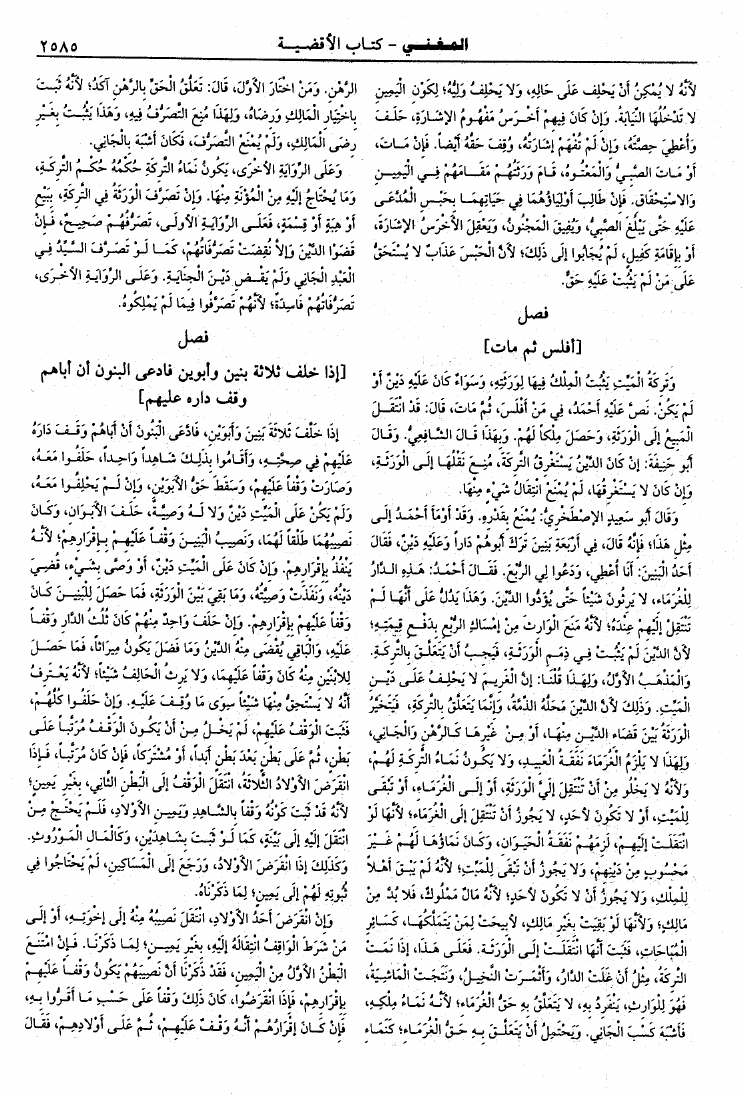 المغني - كتاب الأقضية
٢٥٨٥
لأَنَّهُ لا يُمْكِنُ أَنْ يَحْلِفَ عَلَى حَالِهِ، وَلا يَحْلِفُ وَلِيُّهُ؛ لِكَوْنِ الْيَمِينِ
لا تَدْخُلُهَا النِّيَابَةُ. وَإِنْ كَانَ فِيهِمْ أَخْرَسُ مَفْهُومُ الإِشَارَةِ، حَلَفَ
وَأُعْطِيَ حِصَّتَهُ، وَإِنْ لَمْ تُفْهَمْ إشَارَتُهُ، وُقِفَ حَقُّهُ أَيْضاً. فَإِنْ مَاتَ،
أَوْ مَاتَ الصَّبِيُّ وَالْمَعْتُوهُ، قَامَ وَرَثَتُهُمْ مَقَامَهُمْ فِي الْيَمِينِ
وَالاسْتِحْقَاقِ. فَإِنْ طَالَبَ أَوْلِيَاؤُهُمَا فِي حَيَاتِهِمَا بِحَبْسِ الْمُدَّعَى
عَلَيْهِ حَتَّى يَبْلُغَ الصَّبِيُّ، وَيُفِيقَ الْمَجْنُونُ، وَيَعْقِلَ الأَخْرَسُ الإِشَارَةَ،
أَوْ بِإِقَامَةِ كَفِيلٍ، لَمْ يُجَابُوا إلَى ذَلِكَ؛ لأَنَّ الْحَبْسَ عَذَابٌ لا يُسْتَحَقُّ
عَلَى مَنْ لَمْ يَثْبُتْ عَلَيْهِ حَقٌّ.
فصل
[أفلس ثم مات]
وَتَرِكَةُ الْمَيِّتِ يَثْبُتُ الْمِلْكُ فِيهَا لِوَرَثَتِهِ، وَسَوَاءٌ كَانَ عَلَيْهِ دَيْنٌ أَوْ
لَمْ يَكُنْ. نَصَّ عَلَيْهِ أَحْمَدُ، فِي مَنْ أَفْلَسَ، ثُمَّ مَاتَ، قَالَ: قَدْ انْتَقَلَ
الْمَبِيعُ إلَى الْوَرَثَةِ، وَحَصَلَ مِلْكاً لَهُمْ. وَبِهَذَا قَالَ الشَّافِعِيُّ. وَقَالَ
أَبُو حَنِيفَةَ: إنْ كَانَ الدَّيْنُ يَسْتَغْرِقُ التَّرِكَةَ، مُنِعَ نَقْلُهَا إلَى الْوَرَثَةِ،
وَإِنْ كَانَ لا يَسْتَغْرِقُهَا، لَمْ يُمْنَعْ انْتِقَالُ شَيْءٍ مِنْهَا.
وَقَالَ أَبُو سَعِيدٍ الإِصْطَخْرِيُّ: يُمْنَعُ بِقَدْرِهِ. وَقَدْ أَوْمَأَ أَحْمَدُ إلَى
مِثْلِ هَذَا؛ فَإِنَّهُ قَالَ، فِي أَرْبَعَةِ بَنِينَ تَرَكَ أَبُوهُمْ دَاراً وَعَلَيْهِ دَيْنٌ، فَقَالَ
أَحَدُ الْبَنِينَ: أَنَا أُعْطِي، وَدَعُوا لِي الرُّبْعَ. فَقَالَ أَحْمَدُ: هَذِهِ الدَّارُ
لِلْغُرَمَاءِ، لا يَرِثُونَ شَيْئاً حَتَّى يُؤَدُّوا الدَّيْنَ. وَهَذَا يَدُلُّ عَلَى أَنَّهَا لَمْ
تَنْتَقِلْ إلَيْهِمْ عِنْدَهُ؛ لأَنَّهُ مَنَعَ الْوَارِثَ مِنْ إمْسَاكِ الرُّبْعِ بِدَفْعِ قِيمَتِهِ؛
لأَنَّ الدَّيْنَ لَمْ يَثْبُتْ فِي ذِمَمِ الْوَرَثَةِ، فَيَجِبُ أَنْ يَتَعَلَّقَ بِالتَّرِكَةِ.
وَالْمَذْهَبُ الأَوَّلُ، وَلِهَذَا قُلْنَا: إنَّ الْغَرِيمَ لا يَحْلِفُ عَلَى دَيْنِ
الْمَيِّتِ. وَذَلِكَ لأَنَّ الدَّيْنَ مَحَلُّهُ الذِّمَّةُ، وَإِنَّمَا يَتَعَلَّقُ بِالتَّرِكَةِ، فَيَتَخَيَّرُ
الْوَرَثَةُ بَيْنَ قَضَاءِ الدَّيْنِ مِنْهَا، أَوْ مِنْ غَيْرِهَا كَالرَّهْنِ وَالْجَانِي،
وَلِهَذَا لا يَلْزَمُ الْغُرَمَاءَ نَفَقَةُ الْعَبِيدِ، وَلا يَكُونُ نَمَاءُ التَّرِكَةِ لَهُمْ،
وَلأَنَّهُ لا يَخْلُو مِنْ أَنْ تَنْتَقِلَ إلَيَّ الْوَرَثَةِ، أَوْ إلَى الْغُرَمَاءِ، أَوْ تَبْقَى
لِلْمَيِّتِ، أَوْ لا تَكُونَ لأَحَدٍ، لا يَجُوزُ أَنْ تَنْتَقِلَ إلَى الْغُرَمَاءِ؛ لأَنَّهَا لَوْ
انْتَقَلَتْ إلَيْهِمْ، لَزِمَهُمْ نَفَقَةُ الْحَيَوَانِ، وَكَانَ نَمَاؤُهَا لَهُمْ غَيْرَ
مَحْسُوبٍ مِنْ دَيْنِهِمْ، وَلا يَجُوزُ أَنْ تَبْقَى لِلْمَيِّتِ؛ لأَنَّهُ لَمْ يَبْقَ أَهْلاً
لِلْمِلْكِ، وَلا يَجُوزُ أَنْ لا تَكُونَ لأَحَدٍ؛ لأَنَّهُ مَالٌ مَمْلُوكٌ، فَلا بُدَّ مِنْ
مَالِكٍ؛ وَلأَنَّهَا لَوْ بَقِيَتْ بِغَيْرِ مَالِكٍ، لأُبِيحَتْ لِمَنْ يَتَمَلَّكُهَا، كَسَائِرِ
الْمُبَاحَاتِ، فَثَبَتَ أَنَّهَا انْتَقَلَتْ إلَى الْوَرَثَةِ. فَعَلَى هَذَا، إذَا نَمَتْ
التَّرِكَةُ، مِثْلُ أَنْ غَلَتْ الدَّارُ، وَأَثْمَرَتْ النَّخِيلُ، وَنَتَجَتْ الْمَاشِيَةُ،
فَهُوَ لِلْوَارِثِ، يَنْفَرِدُ بِهِ، لا يَتَعَلَّقُ بِهِ حَقُّ الْغُرَمَاءِ؛ لأَنَّهُ نَمَاءُ مِلْكِهِ،
فَأَشْبَهَ كَسْبَ الْجَانِي. وَيَحْتَمِلُ أَنْ يَتَعَلَّقَ بِهِ حَقُّ الْغُرَمَاءِ؛ كَنَمَاءِ
الرَّهْنِ. وَمَنْ اخْتَارَ الأَوَّلَ، قَالَ: تَعَلُّقُ الْحَقِّ بِالرَّهْنِ آكَدُ؛ لأَنَّهُ ثَبَتَ
بِاخْتِيَارِ الْمَالِكِ وَرِضَاهُ، وَلِهَذَا مُنِعَ التَّصَرُّفَ فِيهِ، وَهَذَا يَثْبُتُ بِغَيْرِ
رِضَى الْمَالِكِ، وَلَمْ يُمْنَعْ التَّصَرُّفَ، فَكَانَ أَشْبَهَ بِالْجَانِي.
وَعَلَى الرِّوَايَةِ الأُخْرَى، يَكُونُ نَمَاءُ التَّرِكَةِ حُكْمُهُ حُكْمُ التَّرِكَةِ،
وَمَا يُحْتَاجُ إلَيْهِ مِنْ الْمُؤْنَةِ مِنْهَا. وَإِنْ تَصَرَّفَ الْوَرَثَةُ فِي التَّرِكَةِ، بِبَيْعٍ
أَوْ هِبَةٍ أَوْ قِسْمَةٍ، فَعَلَى الرِّوَايَةِ الأُولَى، تَصَرُّفُهُمْ صَحِيحٌ، فَإِنْ
قَضَوْا الدَّيْنَ وَإِلاَّ نُقِضَتْ تَصَرُّفَاتُهُمْ، كَمَا لَوْ تَصَرَّفَ السَّيِّدُ فِي
الْعَبْدِ الْجَانِي وَلَمْ يَقْضِ دَيْنَ الْجِنَايَةِ. وَعَلَى الرِّوَايَةِ الأُخْرَى،
تَصَرُّفَاتُهُمْ فَاسِدَةٌ؛ لأَنَّهُمْ تَصَرَّفُوا فِيمَا لَمْ يَمْلِكُوهُ.
فصل
[إذا خلف ثلاثة بنين وأبوين فادعى البنون أن أباهم
وقف داره عليهم]
إذَا خَلَّفَ ثَلاثَةَ بَنِينَ وَأَبَوَيْنِ، فَادَّعَى الْبَنُونَ أَنَّ أَبَاهُمْ وَقَفَ دَارَهُ
عَلَيْهِمْ فِي صِحَّتِهِ، وَأَقَامُوا بِذَلِكَ شَاهِداً وَاحِداً، حَلَفُوا مَعَهُ،
وَصَارَتْ وَقْفاً عَلَيْهِمْ، وَسَقَطَ حَقُّ الأَبَوَيْنِ، وَإِنْ لَمْ يَحْلِفُوا مَعَهُ،
وَلَمْ يَكُنْ عَلَى الْمَيِّتِ دَيْنٌ وَلا لَهُ وَصِيَّةٌ، حَلَفَ الأَبَوَانِ، وَكَانَ
نَصِيبُهُمَا طَلْقاً لَهُمَا، وَنَصِيبُ الْبَنِينَ وَقْفاً عَلَيْهِمْ بِإِقْرَارِهِمْ؛ لأَنَّهُ
يَنْفُذُ بِإِقْرَارِهِمْ. وَإِنْ كَانَ عَلَى الْمَيِّتِ دَيْنٌ، أَوْ وَصَّى بِشَيْءٍ، قُضِيَ
دَيْنُهُ، وَنَفَذَتْ وَصِيَّتُهُ، وَمَا بَقِيَ بَيْنَ الْوَرَثَةِ، فَمَا حَصَلَ لِلْبَنِينَ كَانَ
وَقْفاً عَلَيْهِمْ بِإِقْرَارِهِمْ. وَإِنْ حَلَفَ وَاحِدٌ مِنْهُمْ كَانَ ثُلُثُ الدَّارِ وَقْفاً
عَلَيْهِ، وَالْبَاقِي يُقْضَى مِنْهُ الدَّيْنُ وَمَا فَضَلَ يَكُونُ مِيرَاثاً، فَمَا حَصَلَ
لِلابْنَيْنِ مِنْهُ كَانَ وَقْفاً عَلَيْهِمَا، وَلا يَرِثُ الْحَالِفُ شَيْئاً؛ لأَنَّهُ يَعْتَرِفُ
أَنَّهُ لا يَسْتَحِقُّ مِنْهَا شَيْئاً سِوَى مَا وُقِفَ عَلَيْهِ. وَإِنْ حَلَفُوا كُلُّهُمْ،
فَثَبَتَ الْوَقْفُ عَلَيْهِمْ، لَمْ يَخْلُ مِنْ أَنْ يَكُونَ الْوَقْفُ مُرَتَّباً عَلَى
بَطْنٍ، ثُمَّ عَلَى بَطْنٍ بَعْدَ بَطْنٍ أَبَداً، أَوْ مُشْتَرَكاً، فَإِنْ كَانَ مُرَتَّباً، فَإِذَا
انْقَرَضَ الأَوْلادُ الثَّلاثَةُ، انْتَقَلَ الْوَقْفُ إلَى الْبَطْنِ الثَّانِي، بِغَيْرِ يَمِينٍ؛
لأَنَّهُ قَدْ ثَبَتَ كَوْنُهُ وَقْفاً بِالشَّاهِدِ وَيَمِينِ الأَوْلادِ، فَلَمْ يَحْتَجْ مِنْ
انْتَقَلَ إلَيْهِ إلَى بَيِّنَةٍ، كَمَا لَوْ ثَبَتَ بِشَاهِدَيْنِ، وَكَالْمَالِ الْمَوْرُوثِ.
وَكَذَلِكَ إذَا انْقَرَضَ الأَوْلادُ، وَرَجَعَ إلَى الْمَسَاكِينِ، لَمْ يَحْتَاجُوا فِي
ثُبُوتِهِ لَهُمْ إلَى يَمِينٍ؛ لِمَا ذَكَرْنَاهُ.
وَإِنْ انْقَرَضَ أَحَدُ الأَوْلادِ، انْتَقَلَ نَصِيبُهُ مِنْهُ إلَى إخْوَتِهِ، أَوْ إلَى
مَنْ شَرَطَ الْوَاقِفُ انْتِقَالَهُ إلَيْهِ، بِغَيْرِ يَمِينٍ؛ لِمَا ذَكَرْنَا. فَإِنْ امْتَنَعَ
الْبَطْنُ الأَوَّلُ مِنْ الْيَمِينِ، فَقَدْ ذَكَرْنَا أَنَّ نَصِيبَهُمْ يَكُونُ وَقْفاً عَلَيْهِمْ
بِإِقْرَارِهِمْ، فَإِذَا انْقَرَضُوا، كَانَ ذَلِكَ وَقْفاً عَلَى حَسَبِ مَا أَقَرُّوا بِهِ،
فَإِنْ كَانَ إقْرَارُهُمْ أَنَّهُ وَقْفٌ عَلَيْهِمْ، ثُمَّ عَلَى أَوْلادِهِمْ، فَقَالَ